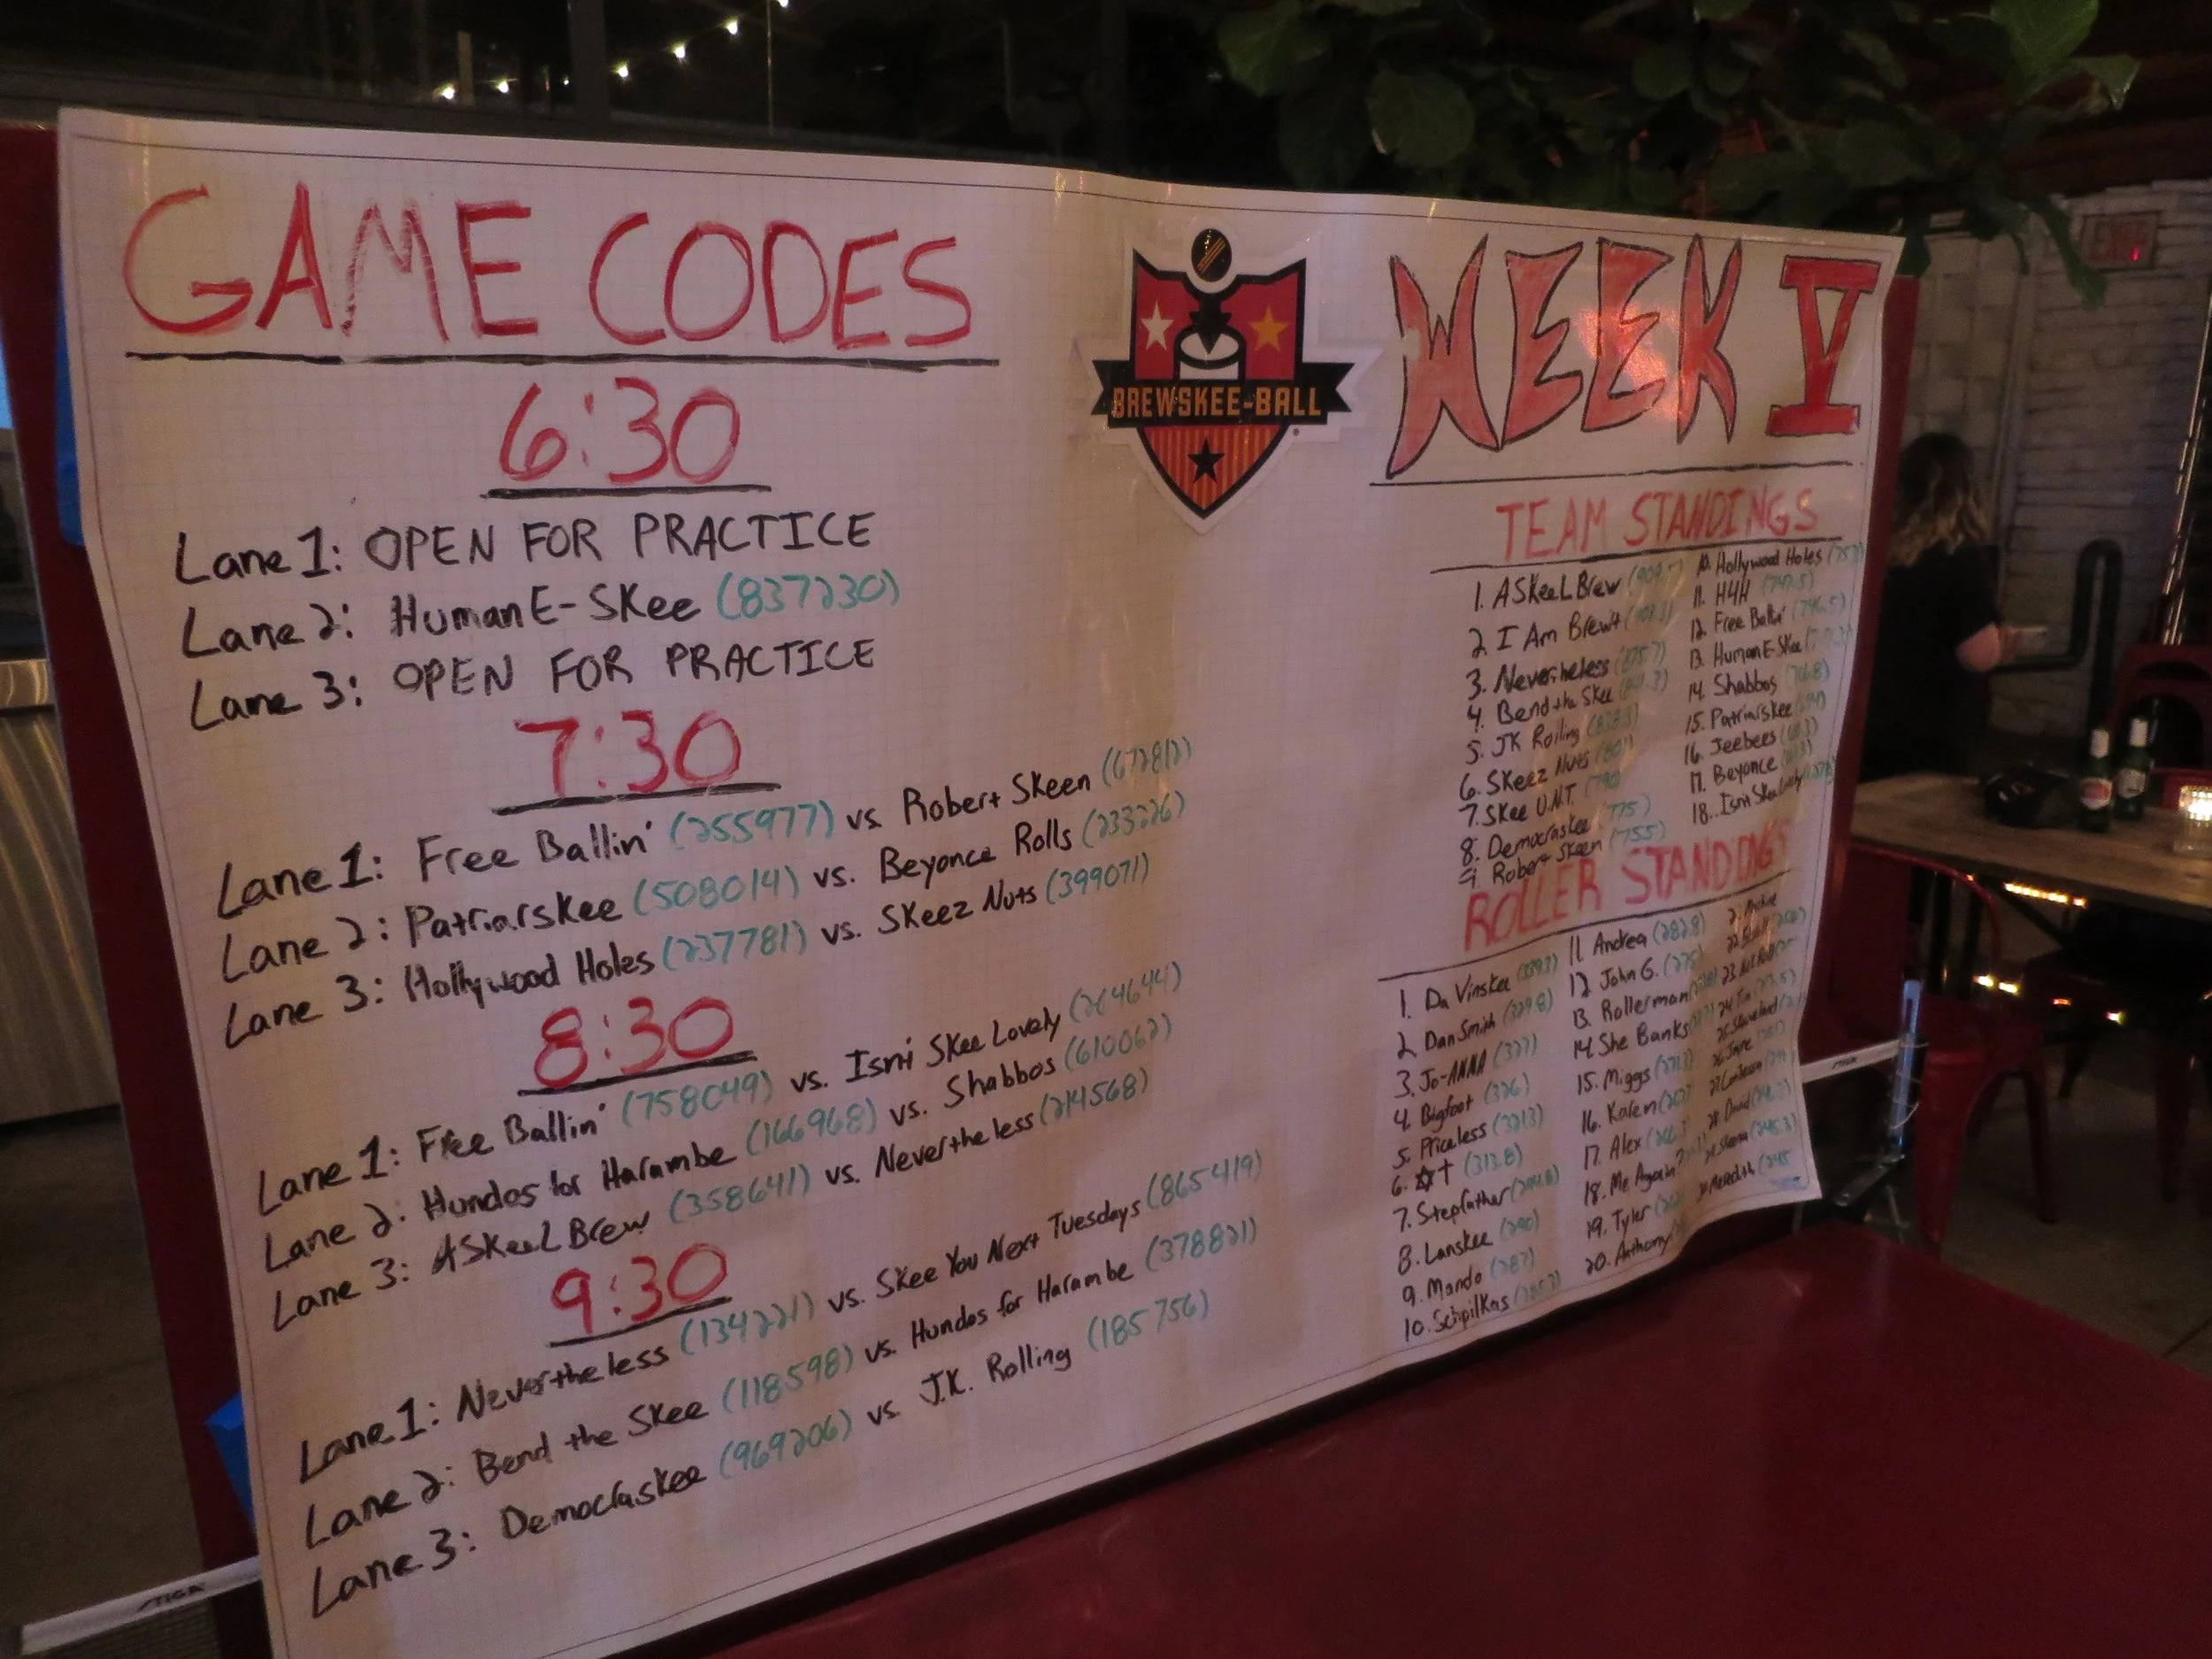 GAME CODES
6:30
Lane 1: OPEN FOR PRACTICE
Lane 2: HumanE-Skee (837230)
Lane 3: OPEN FOR PRACTICE
7:30
Lane 1: Free Ballin' (255977) vs. Robert Skeen (672812)
Lane 2: Patriarskee (508014) vs. Beyonce Rolls (233226)
Lane 3: Hollywood Holes (237781) vs. Skeez Nuts (399071)
8:30
Lane 1: Free Ballin' (758049) vs. Isn't Skee Lovely (264644)
Lane 2: Hundos for Harambe (166968) vs. Shabbos (610062)
Lane 3: ASkeeL Brew (358641) vs. Nevertheless (214568)
9:30
Lane 1: Nevertheless (134221) vs. Skee You Next Tuesdays (865419)
Lane 2: Bend the Skee (118598) vs. Hundos for Harambe (378821)
Lane 3: Democraskee (969206) vs. J.K. Rolling (185756)
BREWSKEE-BALL
WEEK V
TEAM STANDINGS
1. ASkeeL Brew
2. I Am Brewt
3. Nevertheless
4. Bend the Skee
5. JK Rolling
6. Skeez Nuts (801)
7. Skee U.N.T. (790)
8. Democraskee (775)
9. Robert Skeen (755)
10. Hollywood Holes
11. H4H (747.5)
12. Free Ballin' (746.5)
13. HumanE-Skee
14. Shabbos
15. Patriarskee
16. Jeebees
17. Beyonce
18. Isn't Skee Lovely
ROLLER STANDINGS
1. Da Vinskee
2. Dan Smith (329.8)
3. Jo-ANNA (327)
4. Bigfoot (326)
5. Priceless (321.3)
6. ✡✝ (313.8)
7. Stepfather
8. Lanskee (290)
9. Mando (287)
10. Schpilkas
11. Andrea (282.8)
12. John G. (275)
13. Rollerman
14. She Banks
15. Miggs
16. Karen
17. Alex
18. Me Again?
19. Tyler
20. Anthony
24. Tim
26. Jayne
28. David
30. Meredith
STIGA
STIGA
EXIT